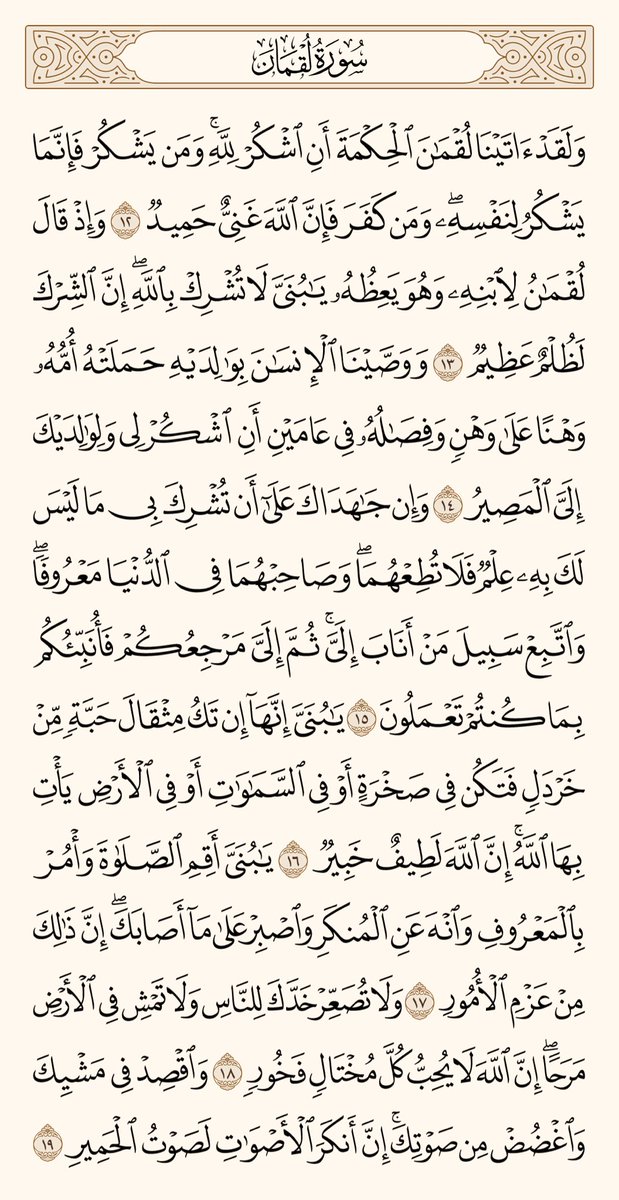 سُورَةُ لُقۡمَانَ
وَلَقَدۡ ءَاتَيۡنَا لُقۡمَٰنَ ٱلۡحِكۡمَةَ أَنِ ٱشۡكُرۡ لِلَّهِۚ وَمَن يَشۡكُرۡ فَإِنَّمَا
يَشۡكُرُ لِنَفۡسِهِۦۖ وَمَن كَفَرَ فَإِنَّ ٱللَّهَ غَنِيٌّ حَمِيدٞ ١٢ وَإِذۡ قَالَ
لُقۡمَٰنُ لِٱبۡنِهِۦ وَهُوَ يَعِظُهُۥ يَٰبُنَيَّ لَا تُشۡرِكۡ بِٱللَّهِۖ إِنَّ ٱلشِّرۡكَ
لَظُلۡمٌ عَظِيمٞ ١٣ وَوَصَّيۡنَا ٱلۡإِنسَٰنَ بِوَٰلِدَيۡهِ حَمَلَتۡهُ أُمُّهُۥ
وَهۡنًا عَلَىٰ وَهۡنٖ وَفِصَٰلُهُۥ فِي عَامَيۡنِ أَنِ ٱشۡكُرۡ لِي وَلِوَٰلِدَيۡكَ
إِلَيَّ ٱلۡمَصِيرُ ١٤ وَإِن جَٰهَدَاكَ عَلَىٰٓ أَن تُشۡرِكَ بِي مَا لَيۡسَ
لَكَ بِهِۦ عِلۡمٞ فَلَا تُطِعۡهُمَاۖ وَصَاحِبۡهُمَا فِي ٱلدُّنۡيَا مَعۡرُوفٗاۖ
وَٱتَّبِعۡ سَبِيلَ مَنۡ أَنَابَ إِلَيَّۚ ثُمَّ إِلَيَّ مَرۡجِعُكُمۡ فَأُنَبِّئُكُم
بِمَا كُنتُمۡ تَعۡمَلُونَ ١٥ يَٰبُنَيَّ إِنَّهَآ إِن تَكُ مِثۡقَالَ حَبَّةٖ مِّنۡ
خَرۡدَلٖ فَتَكُن فِي صَخۡرَةٍ أَوۡ فِي ٱلسَّمَٰوَٰتِ أَوۡ فِي ٱلۡأَرۡضِ يَأۡتِ
بِهَا ٱللَّهُۚ إِنَّ ٱللَّهَ لَطِيفٌ خَبِيرٞ ١٦ يَٰبُنَيَّ أَقِمِ ٱلصَّلَوٰةَ وَأۡمُرۡ
بِٱلۡمَعۡرُوفِ وَٱنۡهَ عَنِ ٱلۡمُنكَرِ وَٱصۡبِرۡ عَلَىٰ مَآ أَصَابَكَۖ إِنَّ ذَٰلِكَ
مِنۡ عَزۡمِ ٱلۡأُمُورِ ١٧ وَلَا تُصَعِّرۡ خَدَّكَ لِلنَّاسِ وَلَا تَمۡشِ فِي ٱلۡأَرۡضِ
مَرَحًاۖ إِنَّ ٱللَّهَ لَا يُحِبُّ كُلَّ مُخۡتَالٖ فَخُورٖ ١٨ وَٱقۡصِدۡ فِي مَشۡيِكَ
وَٱغۡضُضۡ مِن صَوۡتِكَۚ إِنَّ أَنكَرَ ٱلۡأَصۡوَٰتِ لَصَوۡتُ ٱلۡحَمِيرِ ١٩